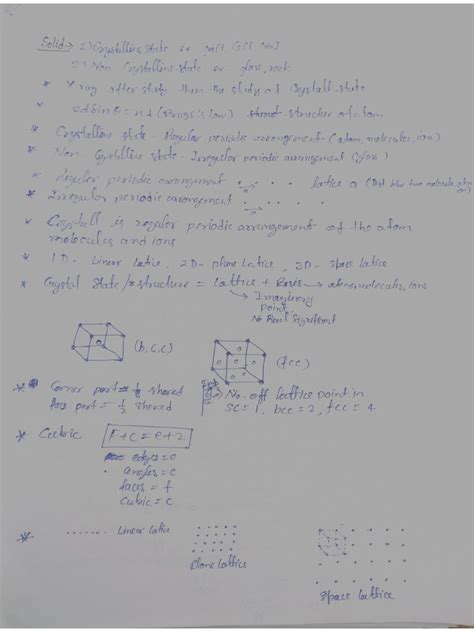 Solid → 1) Crystalline state is NaCl, CsCl, NaI
2) Non Crystalline state or glass, rock
* X ray after study then the study of Crystall state
* 2dsinθ = nλ (Bragg's low) structer of atom
* Crystalline state - Regular periodic arrangement - (atom, molecules, ion)
* Non Cyrtlline state - Irregular periodic arrangement (glass)
* Regular periodic arrangement lattice a (Dist b/w two molecule
* Irregular periodic arrangement
* Crystall is regular periodic arrangement of the atom
molecules and ions
* 1D - Linear latice, 2D - plane latice, 3D - space latice
* Crystal State/structure = Lattice + Bases → molecules, ions
→ Imaginary
point
No Real Significent
(b,c,c) (fcc)
* Corner part = 1/8 shared
face part = 1/2 shared
No. off lettice point in
SC = 1, bcc = 2, fcc = 4
* Cubric F+C = e+2
edges = e
angles = c
faces = f
Cubic = c
* ....... Linear lattice
Plane lattice
Space lattice